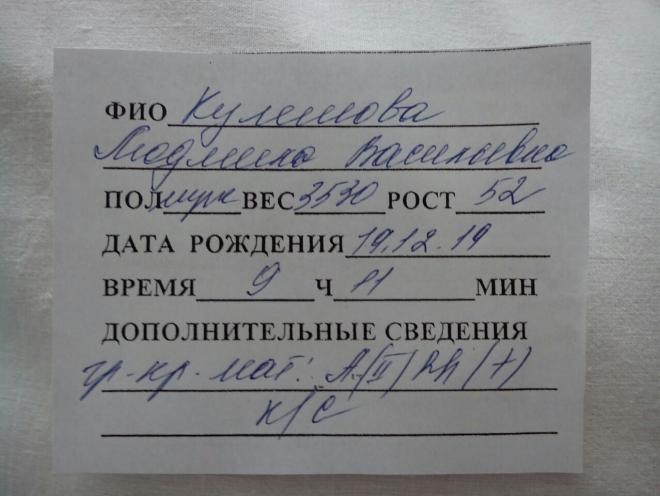 ФИО Кулешова
Людмила Васильевна
ПОЛ муж ВЕС 3530 РОСТ 52
ДАТА РОЖДЕНИЯ 19.12.19
ВРЕМЯ 9 Ч 11 МИН
ДОПОЛНИТЕЛЬНЫЕ СВЕДЕНИЯ
гр-кр. мат: А(II) Rh (+)
к/с